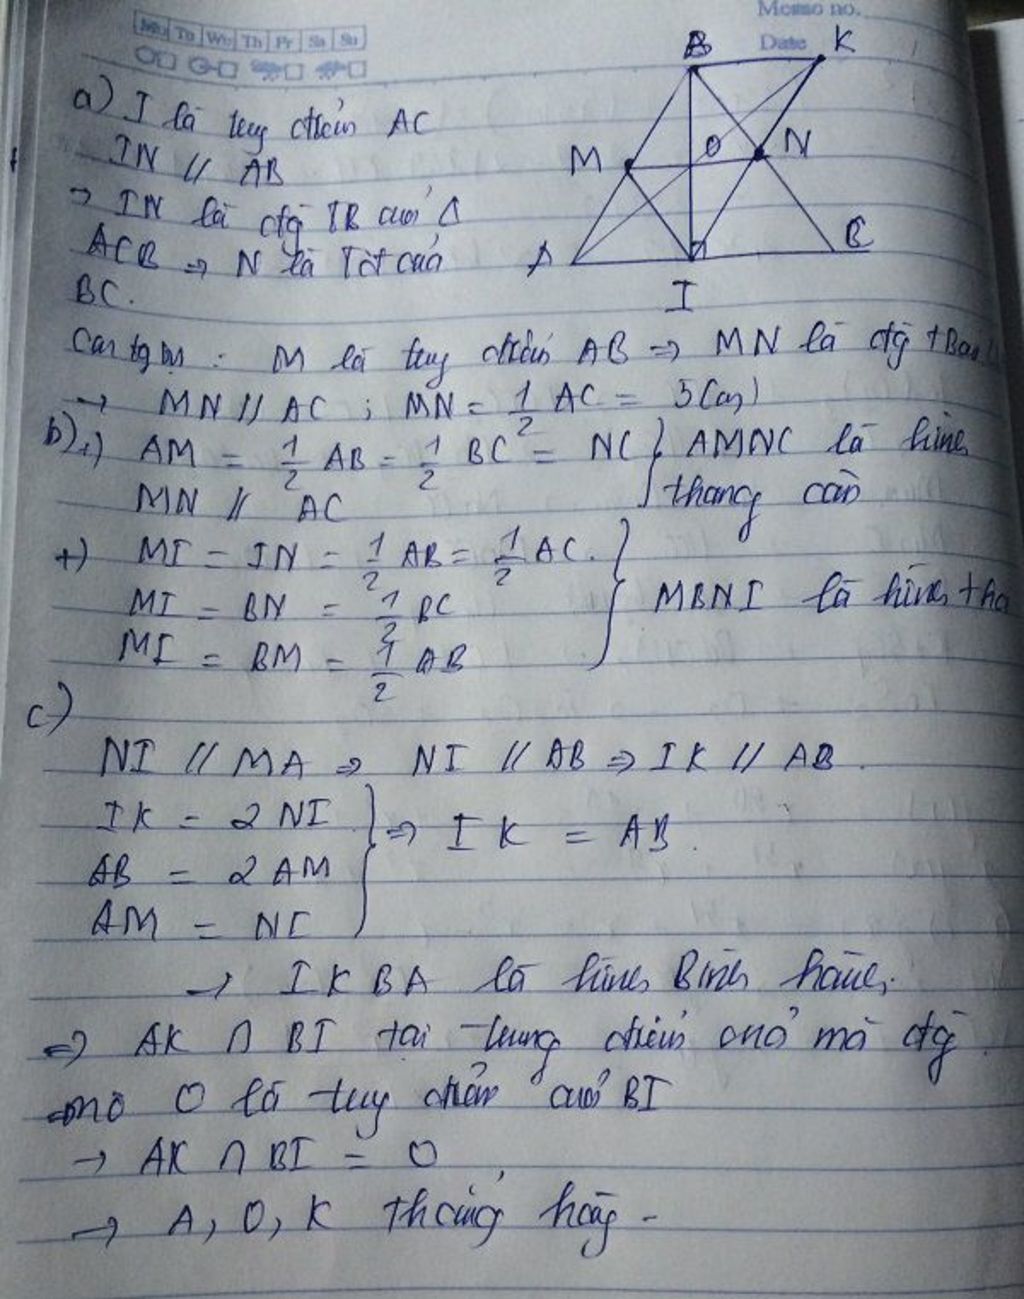 Memo no.
Mo Tu We Th Fr Sa Su
Date
a) I là trung điểm AC
IN // AB
⇒ IN là đtg TB của Δ
ACB ⇒ N là Tđ của
BC.
M là trung điểm AB ⇒ MN là đtg
→ MN // AC ; MN = 1/2 AC = 5(cm)
b) +) AM = 1/2 AB = 1/2 BC = NC } AMNC là hình
MN // AC thang cân
+) MI = IN = 1/2 AB = 1/2 AC.
MI = BN = 1/2 BC } MBNI là hình tho
MI = BM = 1/2 AB
c)
NI // MA ⇒ NI // AB ⇒ IK // AB.
IK = 2 NI
AB = 2 AM } ⇒ IK = AB.
AM = NI
→ IKBA là hình Bình hành.
⇒ AK ∩ BI tại trung điểm mỗi đtg
mà O là trung điểm của BI
→ AK ∩ BI = O
→ A, O, K thẳng hàng -
B
K
M
O
N
A
C
I